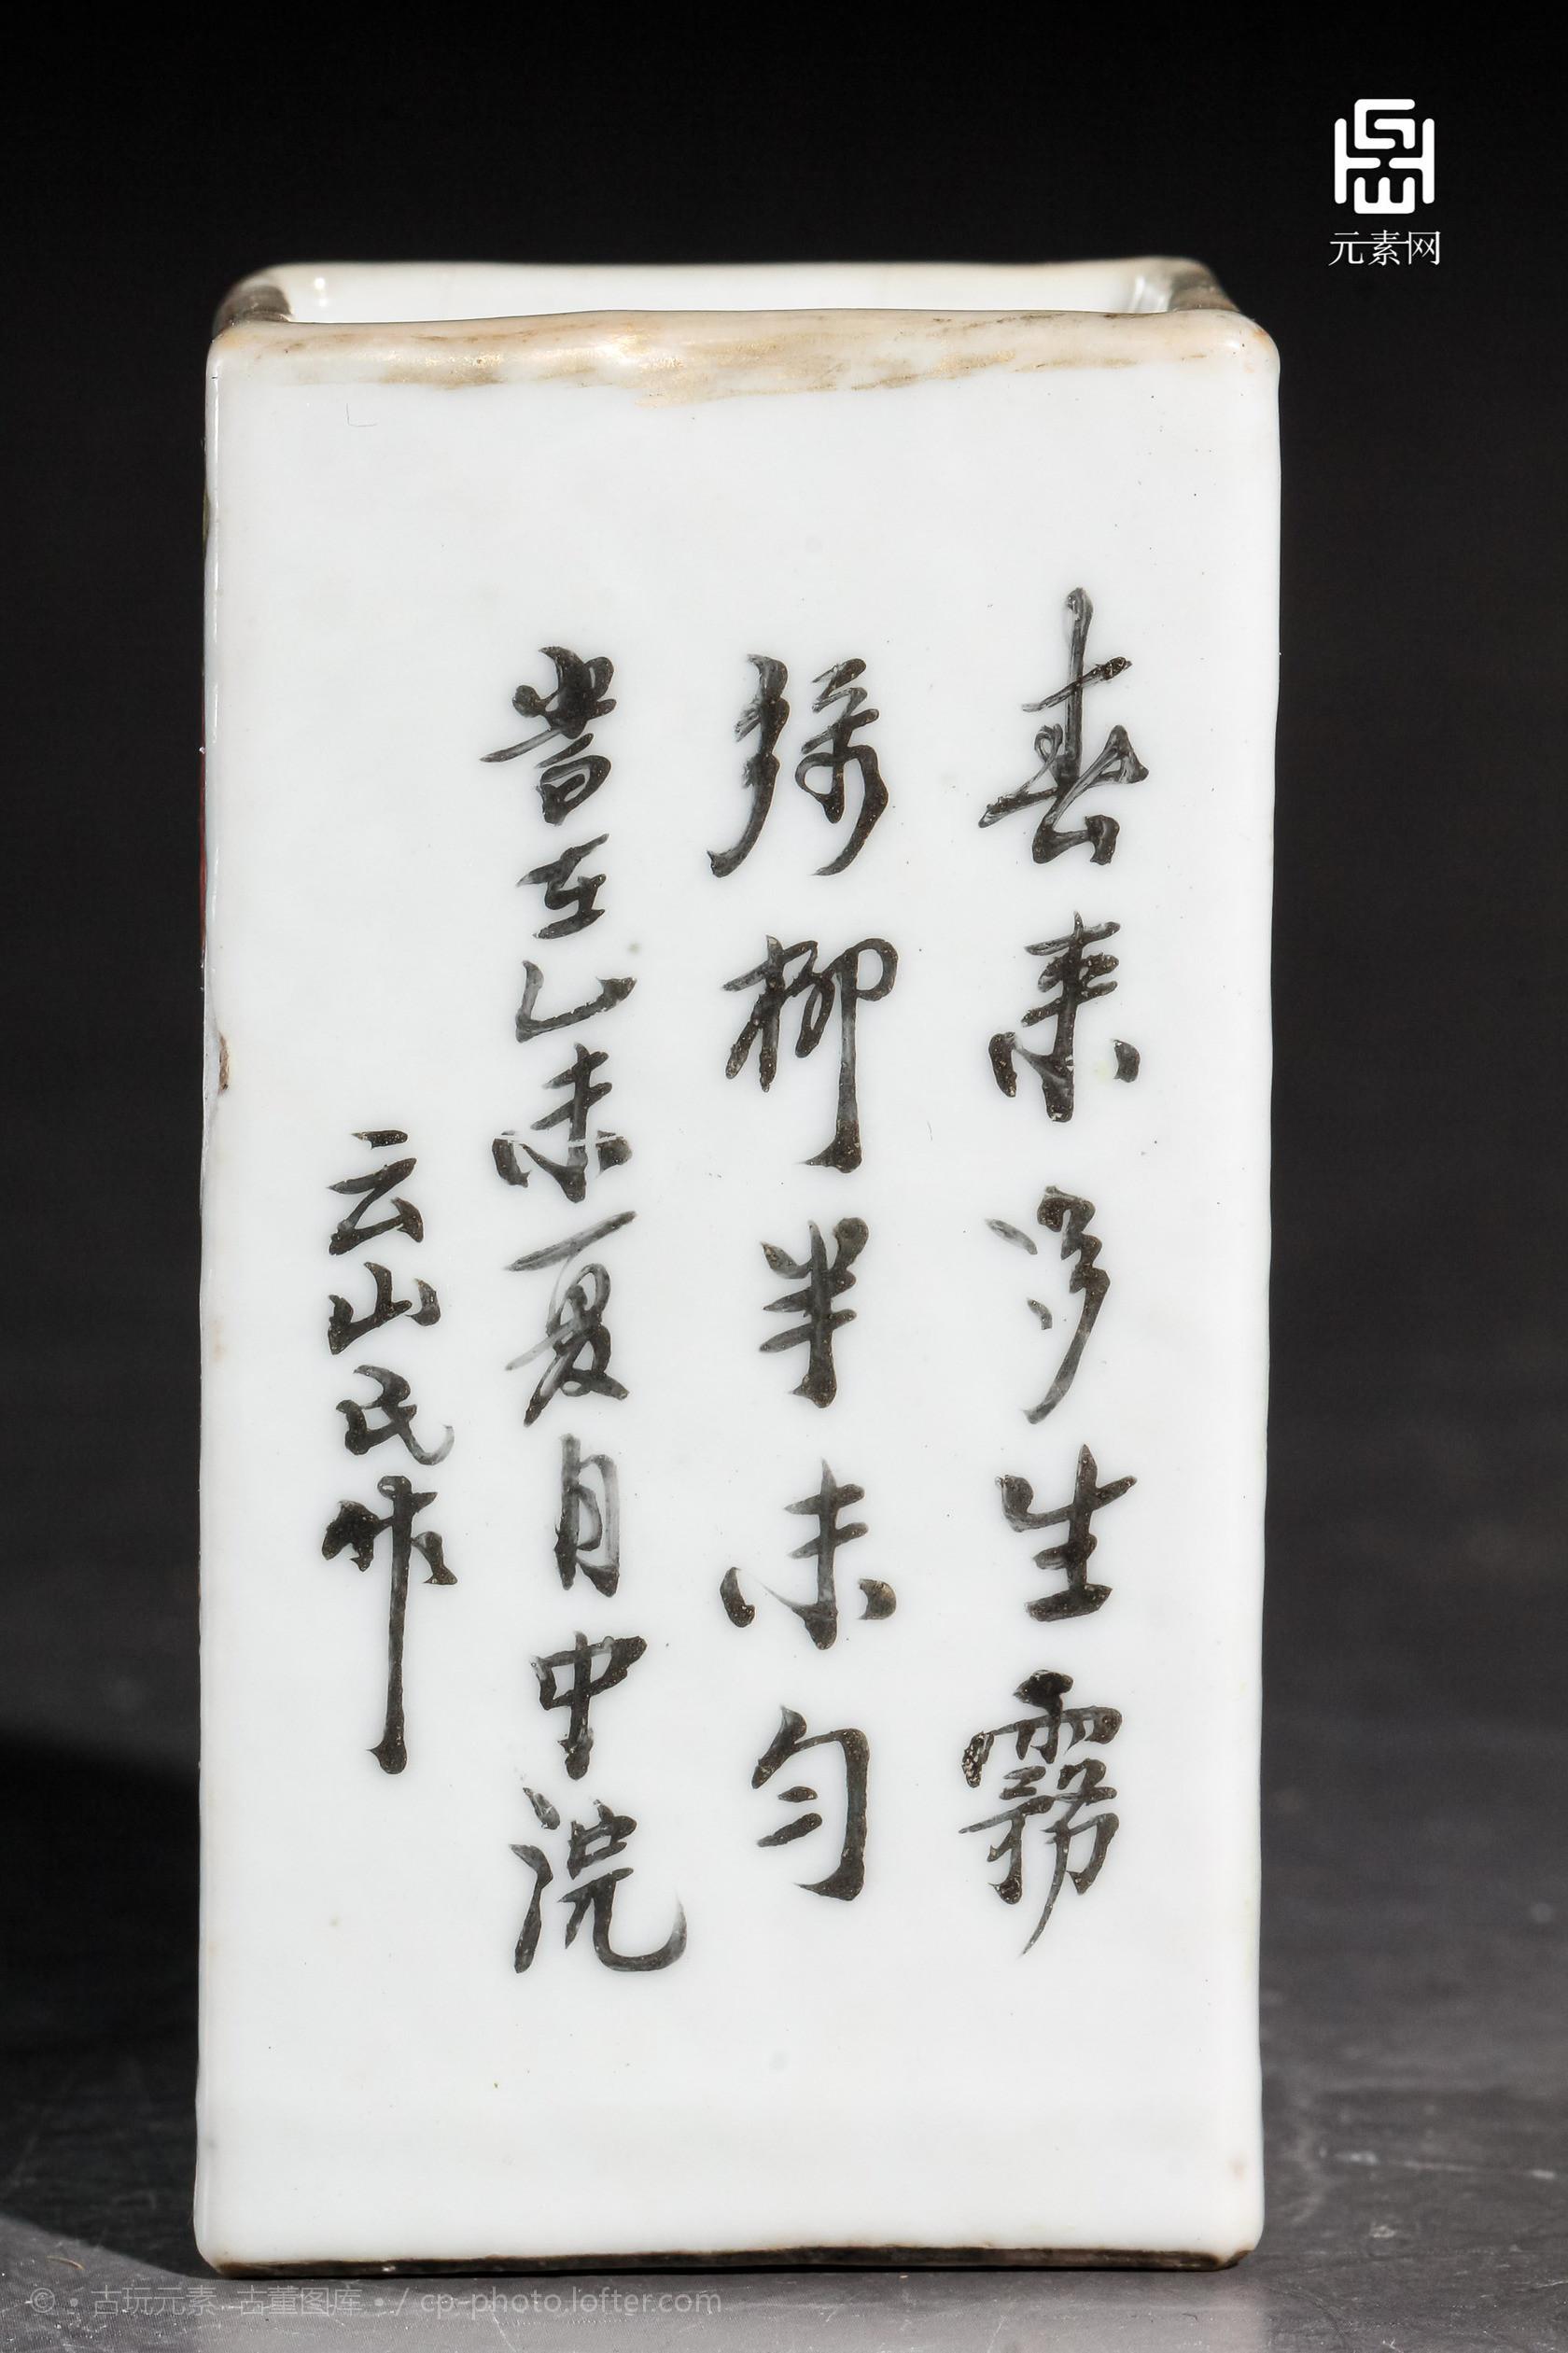 元素网
春来多生霧
綠柳半未匀
旹在乙未夏月中浣
云山氏作
© • 古玩元素-古董图库 • / cp-photo.lofter.com